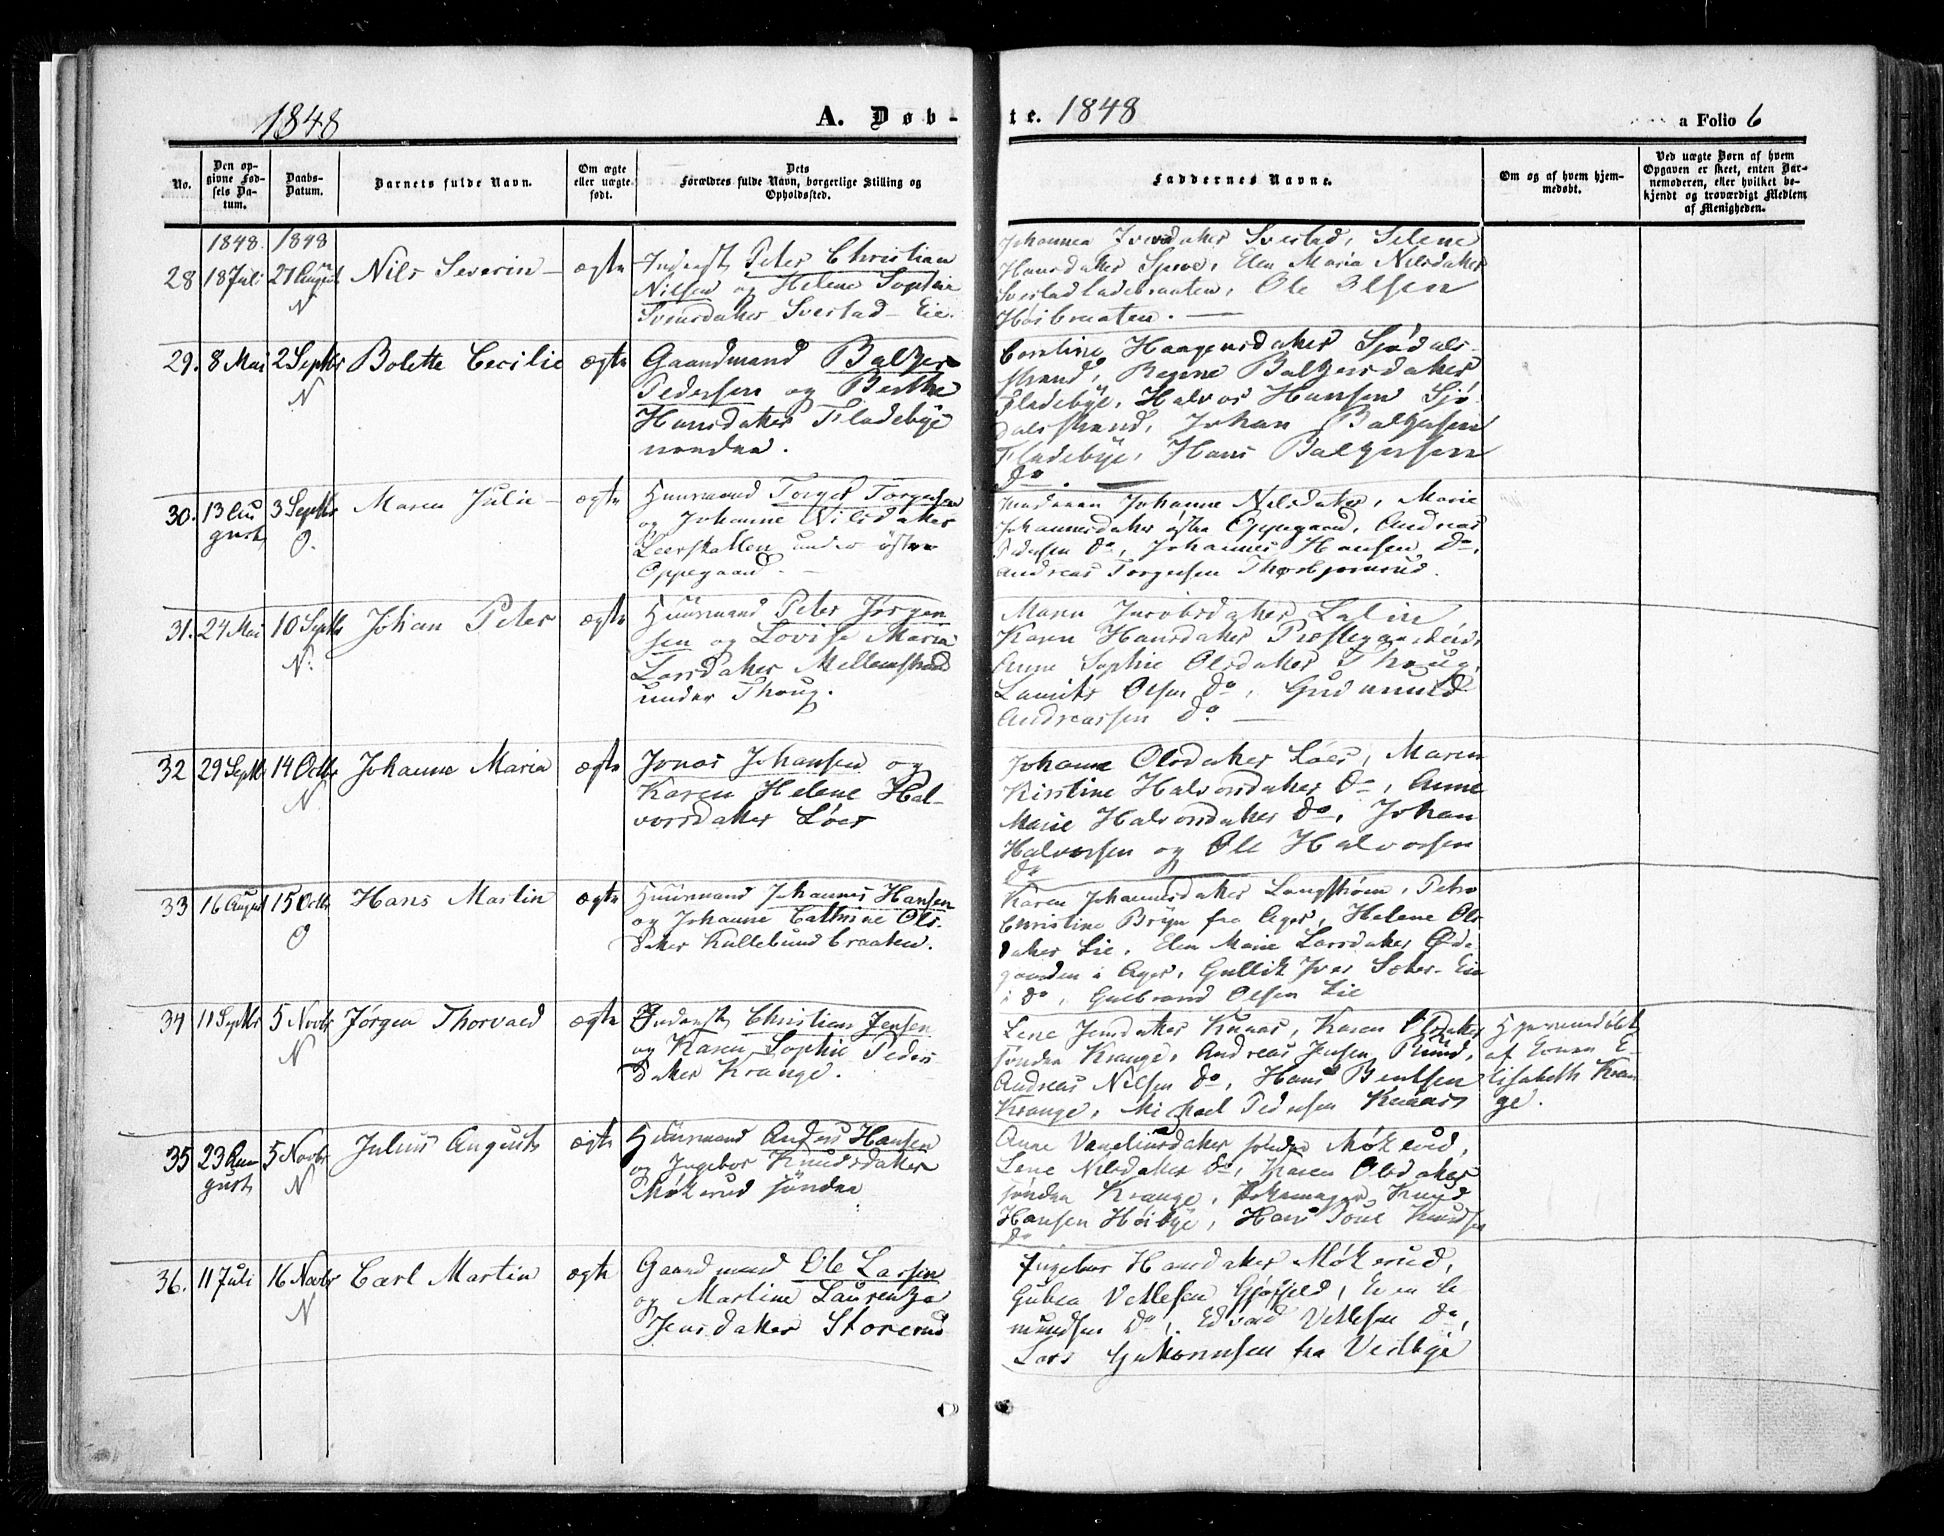 1848
A. Døb-
te. 1848
a Folio 6
No.
Den op-
givne Fød-
sels Da-
tum.
Daabs-
Datum.
Barnets fulde Navn.
Om ægte
eller uægte
født.
Dets
Forældres fulde Navn, borgerlige Stilling og
Opholdssted.
Faddernes Navne.
Om og af hvem hjem-
medøbt.
Ved uægte Børn af hvem
Opgaven er skeet, enten Bar-
nemoderen, eller hvilket be-
kjendt og troværdigt Medlem
af Menigheden.
1848. 1848
28 18 Juli 27 August
N
Nils Severin
ægte
Inderst Peter Christian
Nilsen og Helene Sophie
Svensdatter Svestad-Eie.
Svestad, Selene
Hansdatter Elen Maria Nilsdatter
Ole Olsen
Høibraaten.
29. 8 Mai 2 Septbr
N
Bolette Cecilie
ægte
Gaardmand Baltzer
Pedersen og Berthe
Hansdatter Fladebye
nordre.
Haagensdatter Sjødals-
strand, Regine Baltzersdatter
Fladebye, Halvor Hansen Sjø-
dalsstrand, Johan Baltzersen
Fladebye, Hans Baltzersen
do.
30. 13 Au
gust
3 Septbr
O.
Maren Julie
ægte
Huusmand Torger Torgersen
og Johanne Nilsdatter
under østre
Oppegaard.
Johanne Nilsdatter, Marie
Johannesdatter østre Oppegaard, Andreas
Pedersen do, Johannes Hansen do,
Andreas Torgersen
31. 24 Mai 10 Septbr
N.
Johan Peter
ægte
Huusmand Peter Jørgen
sen og Lovise Maria
Larsdatter Mellemstrand
under Thoug.
Maren Jacobsdatter
Karen Hansdatter
Anne Sophie Olsdatter Thoug,
Olsen do, Gudmund
Andreassen do
32 29 Septbr 14 Octbr
N.
Johanne Maria
ægte
Jonas Johansen og
Karen Helene Hal-
vorsdatter Løes
Johanne Olsdatter Løes, Maren
Kirstine Halvorsdatter do, Anne
Marie Halvorsdatter do, Johan
Halvorsen og Ole Halvorsen
do
33 16 August 15 Octbr
O
Hans Martin
ægte
Huusmand Johannes Hansen
og Johanne Cathrine Ols-
datter Kullebundbraaten.
Karen Johannesdatter Petro
Christine Bryn fra Ager, Helene Ols
datter Lie, Elen Marie Larsdatter Øde-
gaarden i Ager, Gullik Iver Sæter-Eie
i do, Gulbrand Olsen Lie
34 11 Septbr 5 Novbr
N
Jørgen Thorvald
ægte
Inderst Christian Jensen
og Karen Sophie Peders-
datter Krange.
Lene Jensdatter Knaar, Karen Olsdatter
søndre Krange, Andreas Jensen Rund,
Andreas Nilsen do, Hans Bentsen
Krange, Michael Pedersen Knaar
Hjemmedøbt
af Konen E-
lisabeth Kran
ge.
35 23 Au
gust
5 Novbr
N
Julius August
ægte
Huusmand Anders Hansen
og Ingebor Knudsdatter
Møkerud søndre
Anne søndre Møkerud,
Lene Nilsdatter do, Karen Olsdatter
søndre Krange, Knud
Hansen Høibye, Hans Poul Knudsen
do
36. 11 Juli 16 Novbr
N
Carl Martin
ægte
Gaardmand Ole Larsen
og Martine Laurenza
Jensdatter Storerud
Ingebor Hansdatter Møkerud,
Vetlesen Gjøfjeld,
do, Edvard Vetlesen do,
Lars fra Vestbye